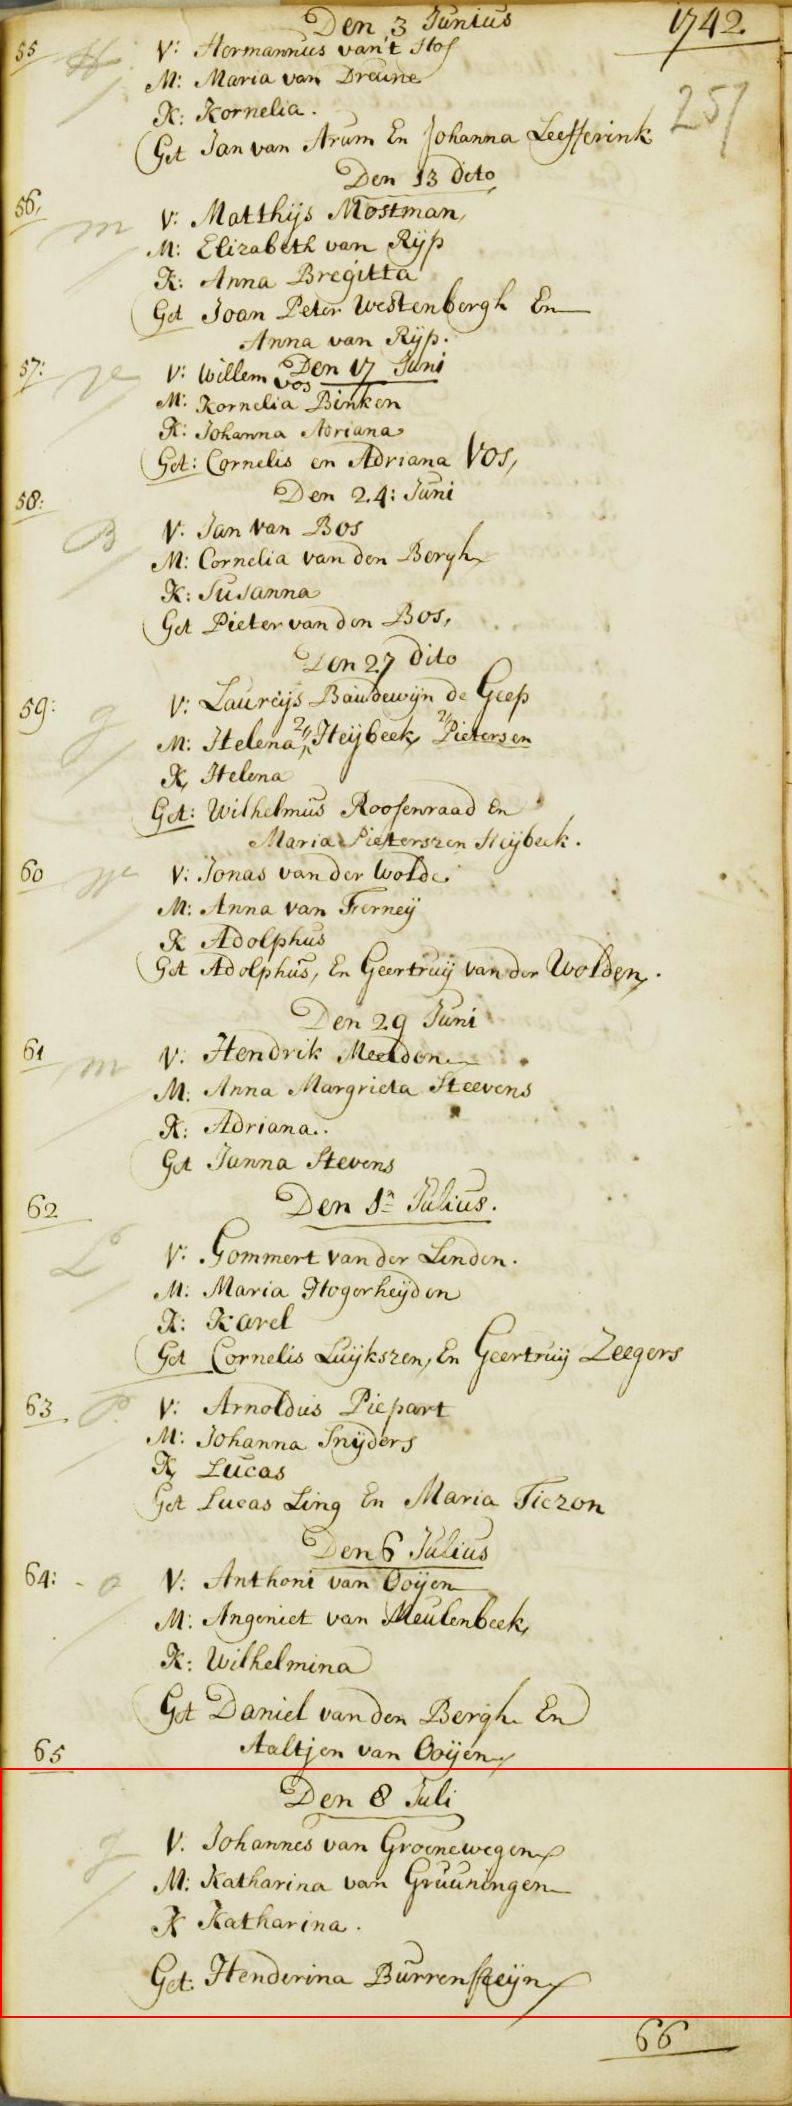 Den 3 Junius 1742
55 V: Hermannus van't Hof
H
M: Maria van Dreune
K: Kornelia.
251
Get Jan van Arum En Johanna Leefferink
Den 13 dito
56, V: Matthijs Mostman,
m
M: Elizabeth van Rijp
K: Anna Bregitta
Get Joan Peter Westenbergh En
Anna van Rijp.
57: Den 17 Juni
V: Willem vos
V
M: Kornelia Binken
K: Johanna Adriana
Get: Cornelis en Adriana Vos,
58: Den 24: Juni
B
V: Jan van Bos
M: Cornelia van den Bergh
K: Susanna
Get Pieter van den Bos,
Den 27 dito
59: V: Laureijs Baudewijn de Geep
g
M: Helena Heijbeek, Pietersen
K, Helena
Get: Wilhelmus Roosenraad En
Maria Pieterszen Heijbeek.
60 V: Jonas van der Wolde.
W
M: Anna van Ferneij
K Adolphus
Get Adolphus, En Geertruij van der Wolden,.
Den 29 Juni
61 V: Hendrik Meelden
m
M: Anna Margrieta Steevens
K: Adriana..
Get Janna Stevens
62 Den 1n Julius.
L
V: Gommert van der Linden.
M: Maria Hogerheijden
K: Karel
Get Cornelis Luijkszen, En Geertruij Zeegers
63. P. V: Arnoldus Piepart
M: Johanna Snijders
K, Lucas
Get Lucas Ling En Maria Tiezon
Den 6 Julius
64: - o V: Anthoni van Ooijen
M: Angeniet van Meulenbeek,
K: Wilhelmina
Get Daniel van den Bergh En
65 Aaltjen van Ooijen
Den 8 Juli
g
V. Johannes van Groenewegen
M: Katharina van Gruuningen
K Katharina.
Get: Henderina Burrensteijn
66